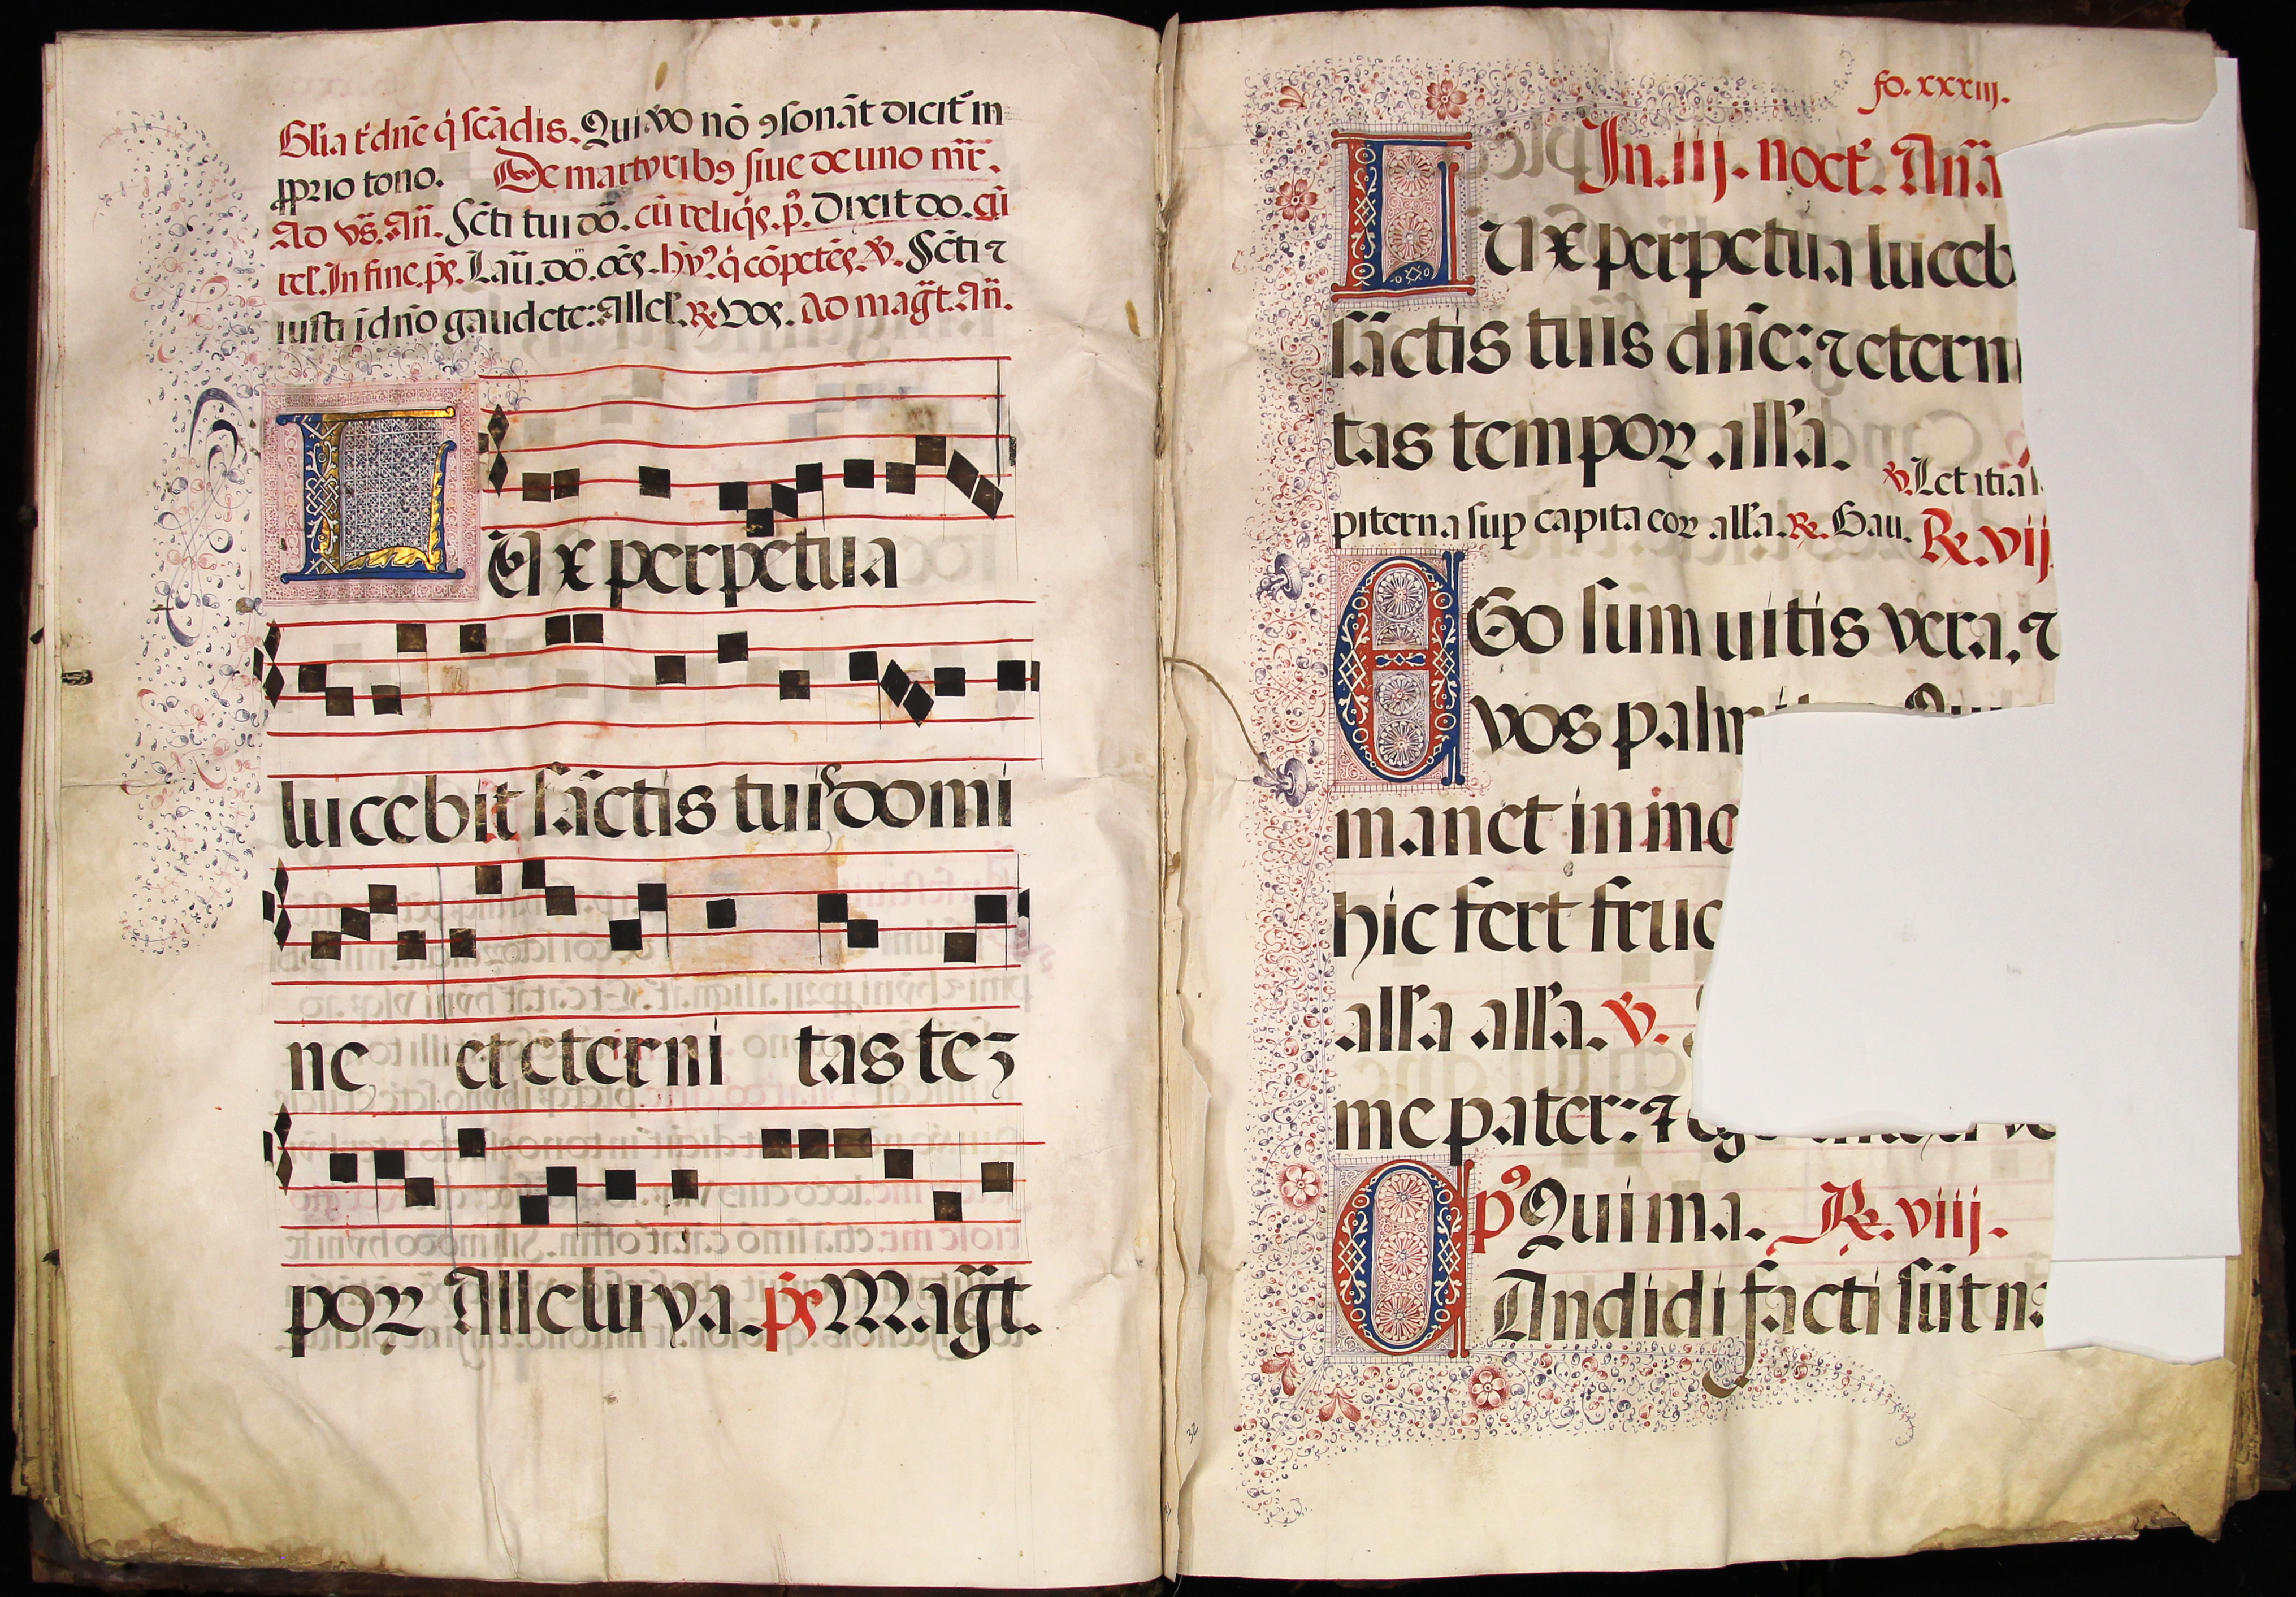 Gl'ia t' dñe q̇ scādis. Qui v̾o nō ꝯsonāt dicit᷑ in
ꝓprio tono. De martyribꝯ siue de uno mr̄.
Ad vs̄. Añ. Scti tui dō. cū reliq̇s. p̄. Dixit do. cū
rel. In fine. ps̄. Lau. dō. oēs. hy̾. q̇ cōpetēs. ℣. Scti ⁊
iusti i dño gaudete: Allel'. ℟. Vos. Ad magt̄. Añ.
LUx perpetua
lucebit sāctis tuis domi
ne et eterni tas teꝫ
poꝝ Alleluya. ps̄ Magt̄.
fo. xxxiij.
In. iij. noct̾. Añā
LUx perpetua luceb
sāctis tuis dñe: ⁊ etern
tas tempoꝝ all'a.
℣. Letitia
piterna sup capita eoꝝ all'a. ℟. Gau. ℟. vij.
EGo sum uitis vera. ⁊
vos palm
manet in me
hic fert fruc
all'a all'a. ℣.
me pater: ⁊ ego
pꝰ Qui ma. ℟. viij.
CAndidi facti sūt na
32